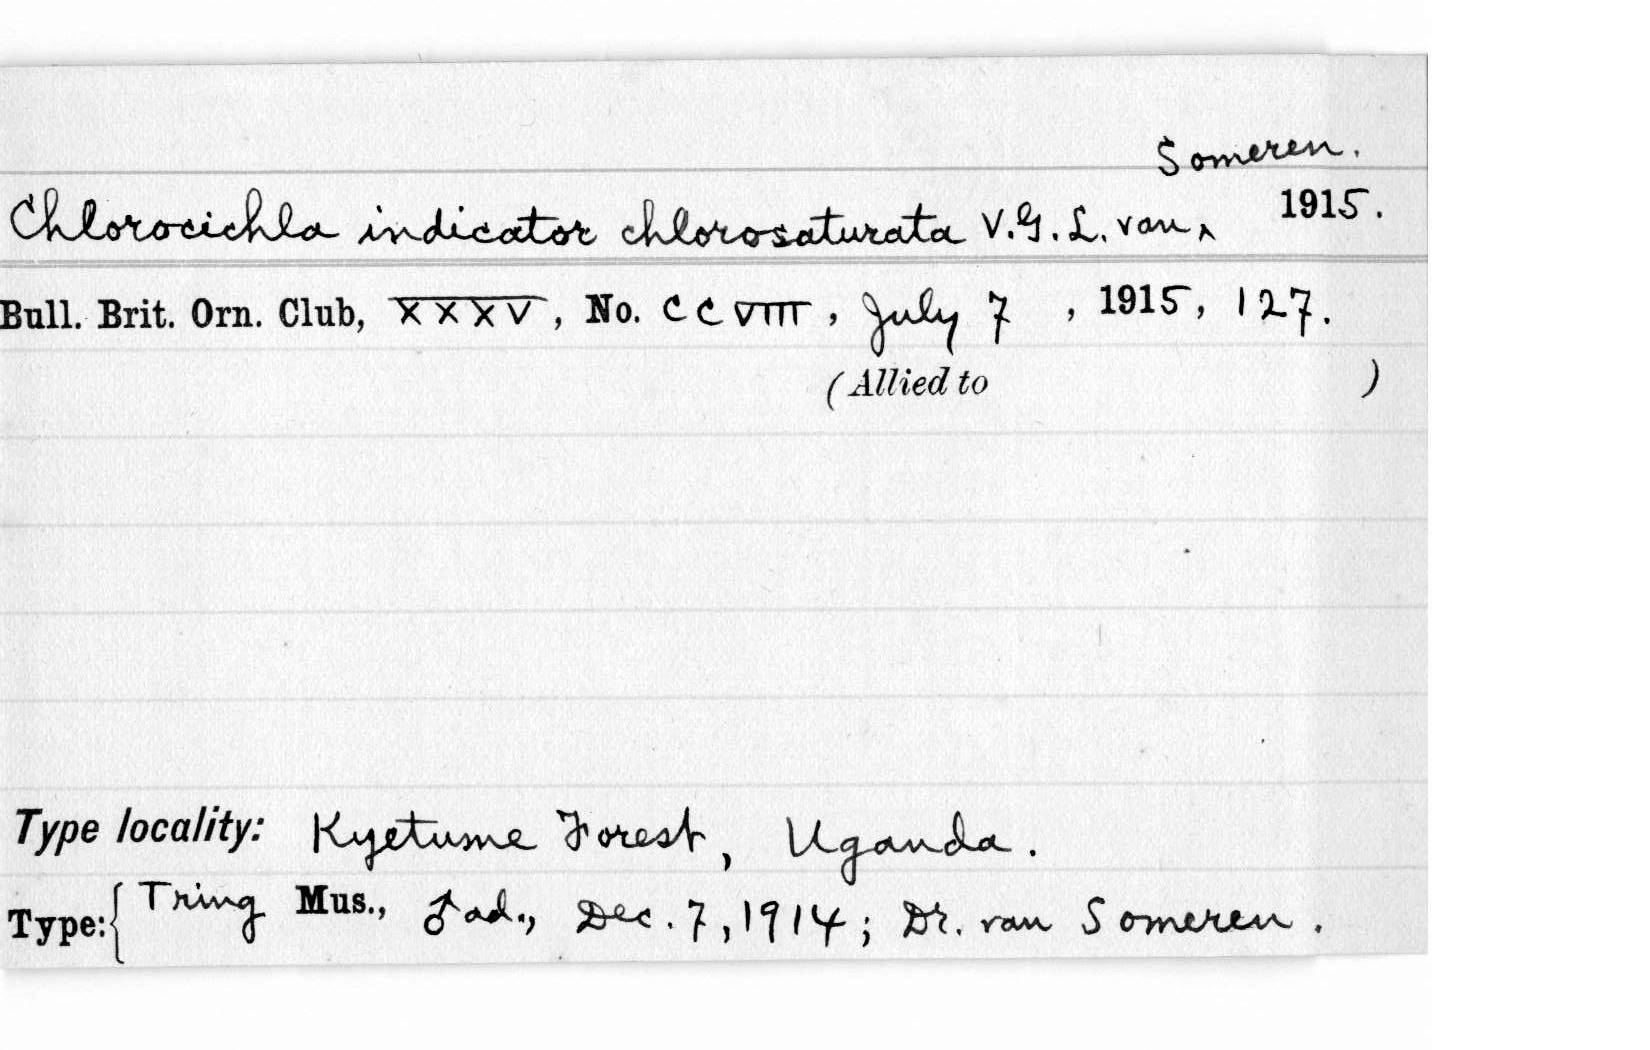 Someren.
Chlorocichla indicator chlorosaturata V.G.L. van ‸ 1915.
Bull. Brit. Orn. Club, XXXV, No. CCVIII, July 7, 1915, 127.
(Allied to )
Type locality: Kyetume Forest, Uganda.
Type: { Tring Mus., ♂ ad., Dec. 7, 1914; Dr. van Someren.